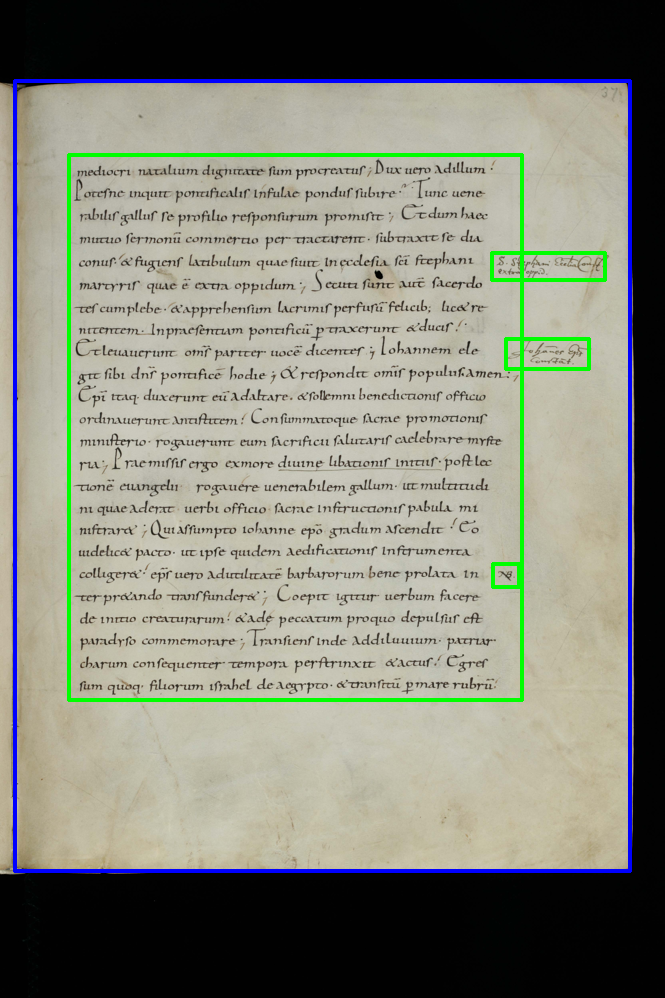 mediocri natalium dignitate sum procreatus; Dux vero ad illum:
Potesne inquit pontificalis infulae pondus subire? Tunc vene
rabilis gallus se pro filio responsurum promisit; Et dum haec
mutuo sermonū commertio per tractarent· subtraxit se dia
conus· & fugiens latibulum quaesiuit in ecclesia sc̄i stephani
martyris quae ē extra oppidum; Secuti sunt autē sacerdo
tes cum plebe· & apprehensum lacrimis perfusū felicib; lic& re
nitentem· In praesentiam pontificū ꝑtraxerunt & ducis!
Et leuauerunt om̄s pariter uocē dicentes; Iohannem ele
git sibi dn̄s pontificē hodie; & respondit om̄is populus amen;
Ep̄i itaq· duxerunt eū ad altare· & sollemni benedictionis officio
ordinauerunt antistitem! Consummatoque sacrae promotionis
ministerio· rogauerunt eum sacrificii salutaris caelebrare myste
ria; Praemissis ergo ex more diuine libationis initiis· post lec
tionē euangelii rogauere venerabilem gallum· ut multitudi
ni quae aderat verbi officio sacrae instructionis pabula mi
nistrar&; Qui assumpto iohanne ep̄o gradum ascendit! Eo
uidelic& pacto· ut ipse quidem aedificationis instrumenta
colliger&! ep̄s vero ad utilitatē barbarorum bene prolata in
terpr&ando transfunder&; Coepit igitur verbum facere
de initio creaturarum! & adę peccatum pro quo depulsus est
paradyso commemorare; Transiens inde ad diluuium· patriar
charum consequenter tempora perstrinxit & actus! Egres
sum quoq· filiorum israhel de aegypto· & transitū ꝑ mare rubrū!
S. Stephani
extra oppid.
Johannes Ep̄s
Constant.
37